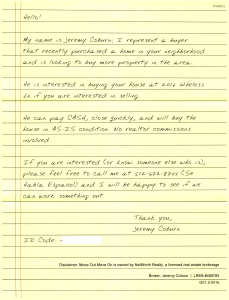 Hello!
My name is Jeremy Coburn. I represent a buyer
that recently purchased a home in your neighborhood
and is looking to buy more property in the area.
He is interested in buying your house at 2016 Wheless
Ln if you are interested in selling.
He can pay CASH, close quickly, and will buy the
house in AS-IS condition. No realtor commissions
involved.
If you are interested (or know someone else who is),
please feel free to call me at (Se
Habla Espanol) and I will be happy to see if we
can work something out.
Thank you,
Jeremy Coburn
ID Code: -
Disclaimer: Move Out Move On is owned by NetWorth Realty, a licensed real estate brokerage
Broker, Jeremy Coburn |